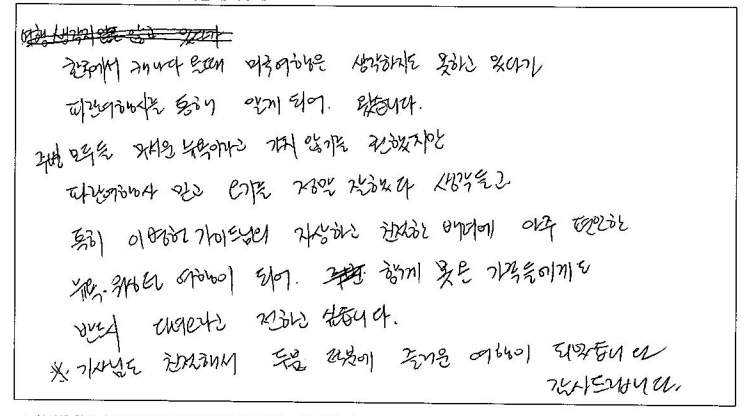 여행 생각지 않고 있다가
한국에서 캐나다 올때 미국여행은 생각하지도 못하고 있다가
파란여행사를 통해 알게 되어. 왔습니다.
주변 모두들 무서운 뉴욕이라고 가지 않기를 권했지만
파란여행사 믿고 오기를 정말 잘했다 생각들고
특히 이명헌 가이드님의 자상하고 친절한 배려에 아주 편안한
뉴욕.워싱턴 여행이 되어. 함께 못온 가족들에게도
반드시 다녀오라고 전하고 싶습니다.
※ 기사님도 친절해서 두분 덕분에 즐거운 여행이 되었습니다
감사드립니다.